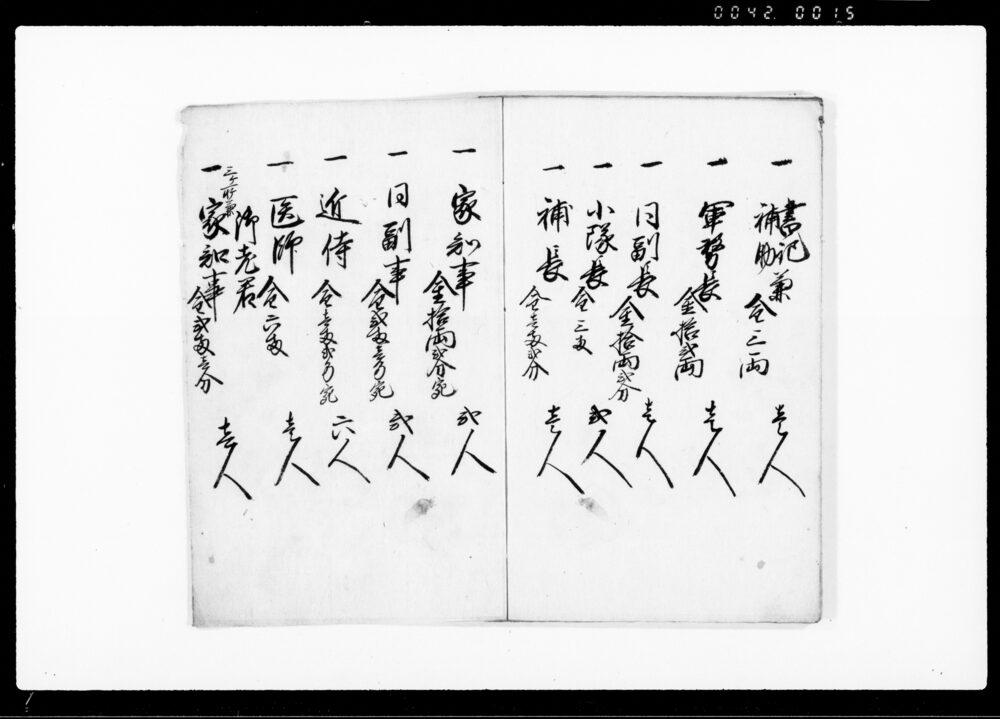 0042.0015
一 書記
補助兼 金三両 壱人
一 軍務長 金拾弐両 壱人
一 同副長 金拾両弐分 壱人
一 小隊長 金三両 弐人
一 補長 金壱両弐分 壱人
一 家知事 金拾両弐分宛 弐人
一 同副事 金弐両壱分宛 弐人
一 近侍 金壱両弐分宛 六人
一 医師 金六両 壱人
御老君
一 家知事 金弐両壱分 壱人